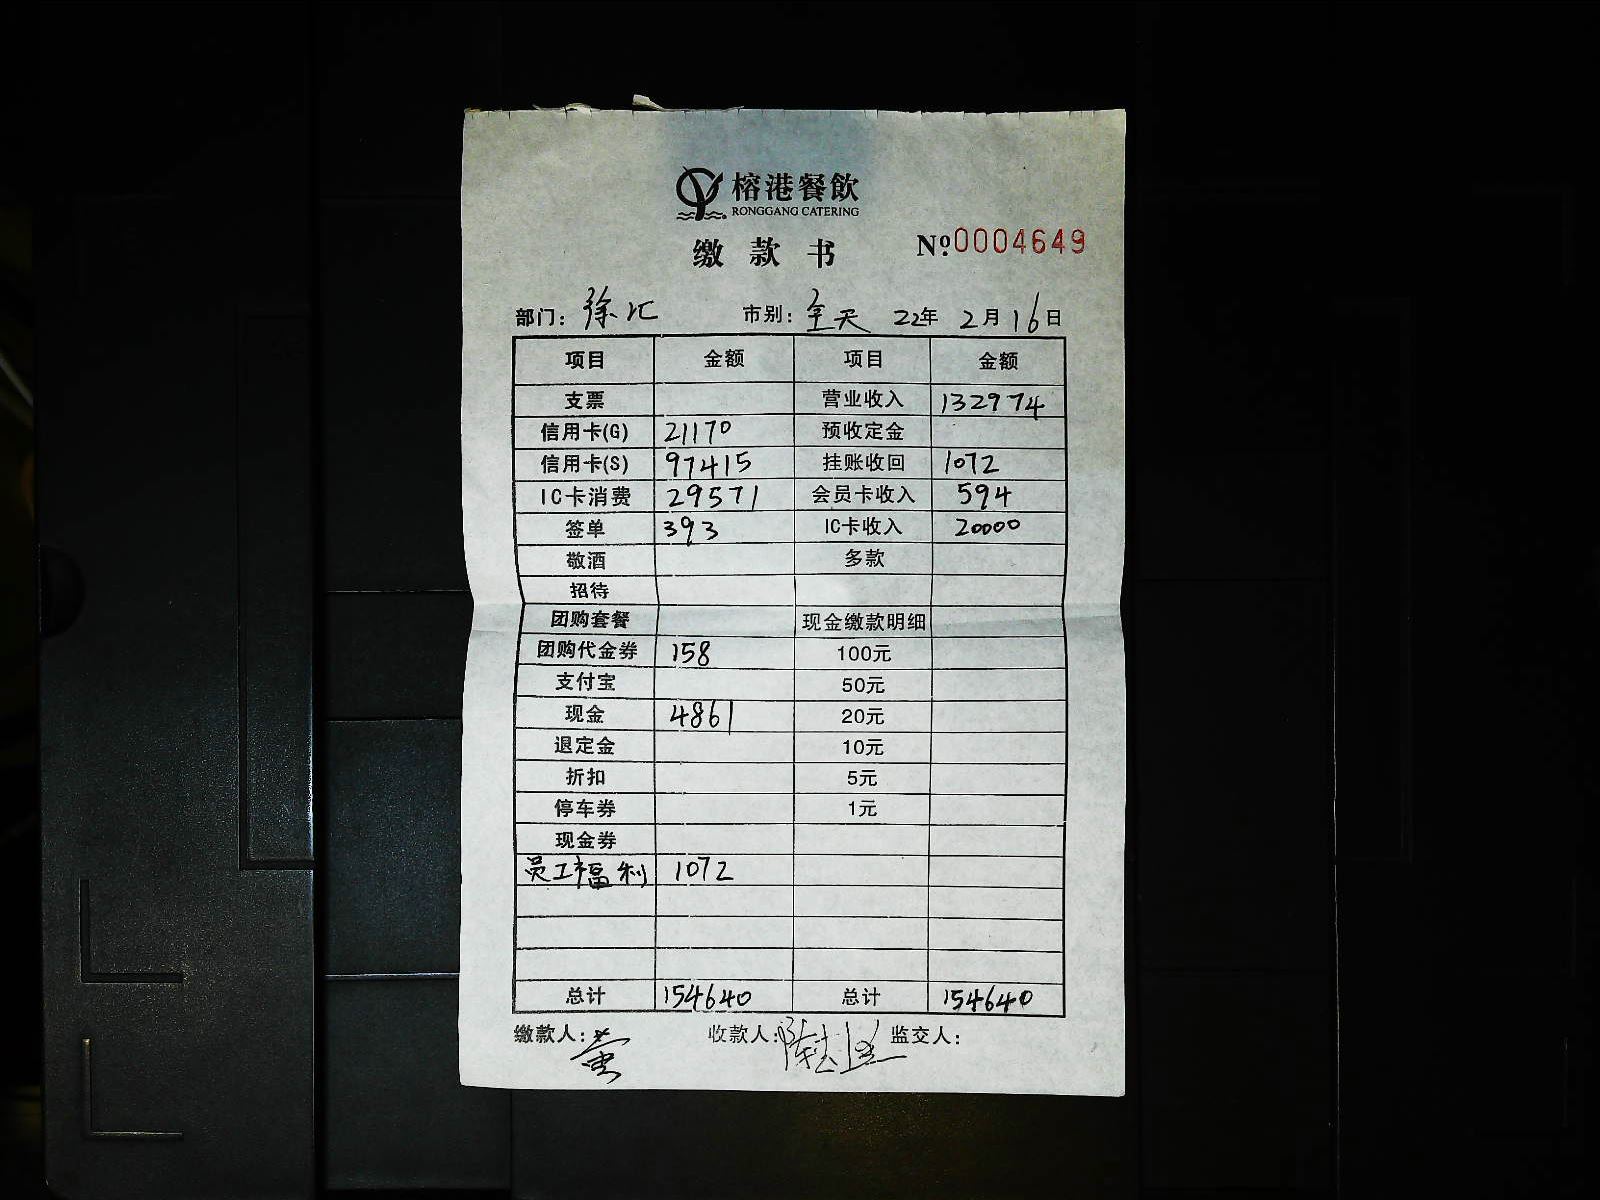 榕港餐飲
RONGGANG CATERING
缴款书 №0004649
部门：徐汇 市别：全天 22年 2月16日
项目 金额 项目 金额
支票 营业收入 132974
信用卡(G) 21170 预收定金
信用卡(S) 97415 挂账收回 1072
IC卡消费 29571 会员卡收入 594
签单 393 IC卡收入 20000
敬酒 多款
招待
团购套餐 现金缴款明细
团购代金券 158 100元
支付宝 50元
现金 4861 20元
退定金 10元
折扣 5元
停车券 1元
现金券
员工福利 1072
总计 154640 总计 154640
缴款人： 收款人： 监交人：